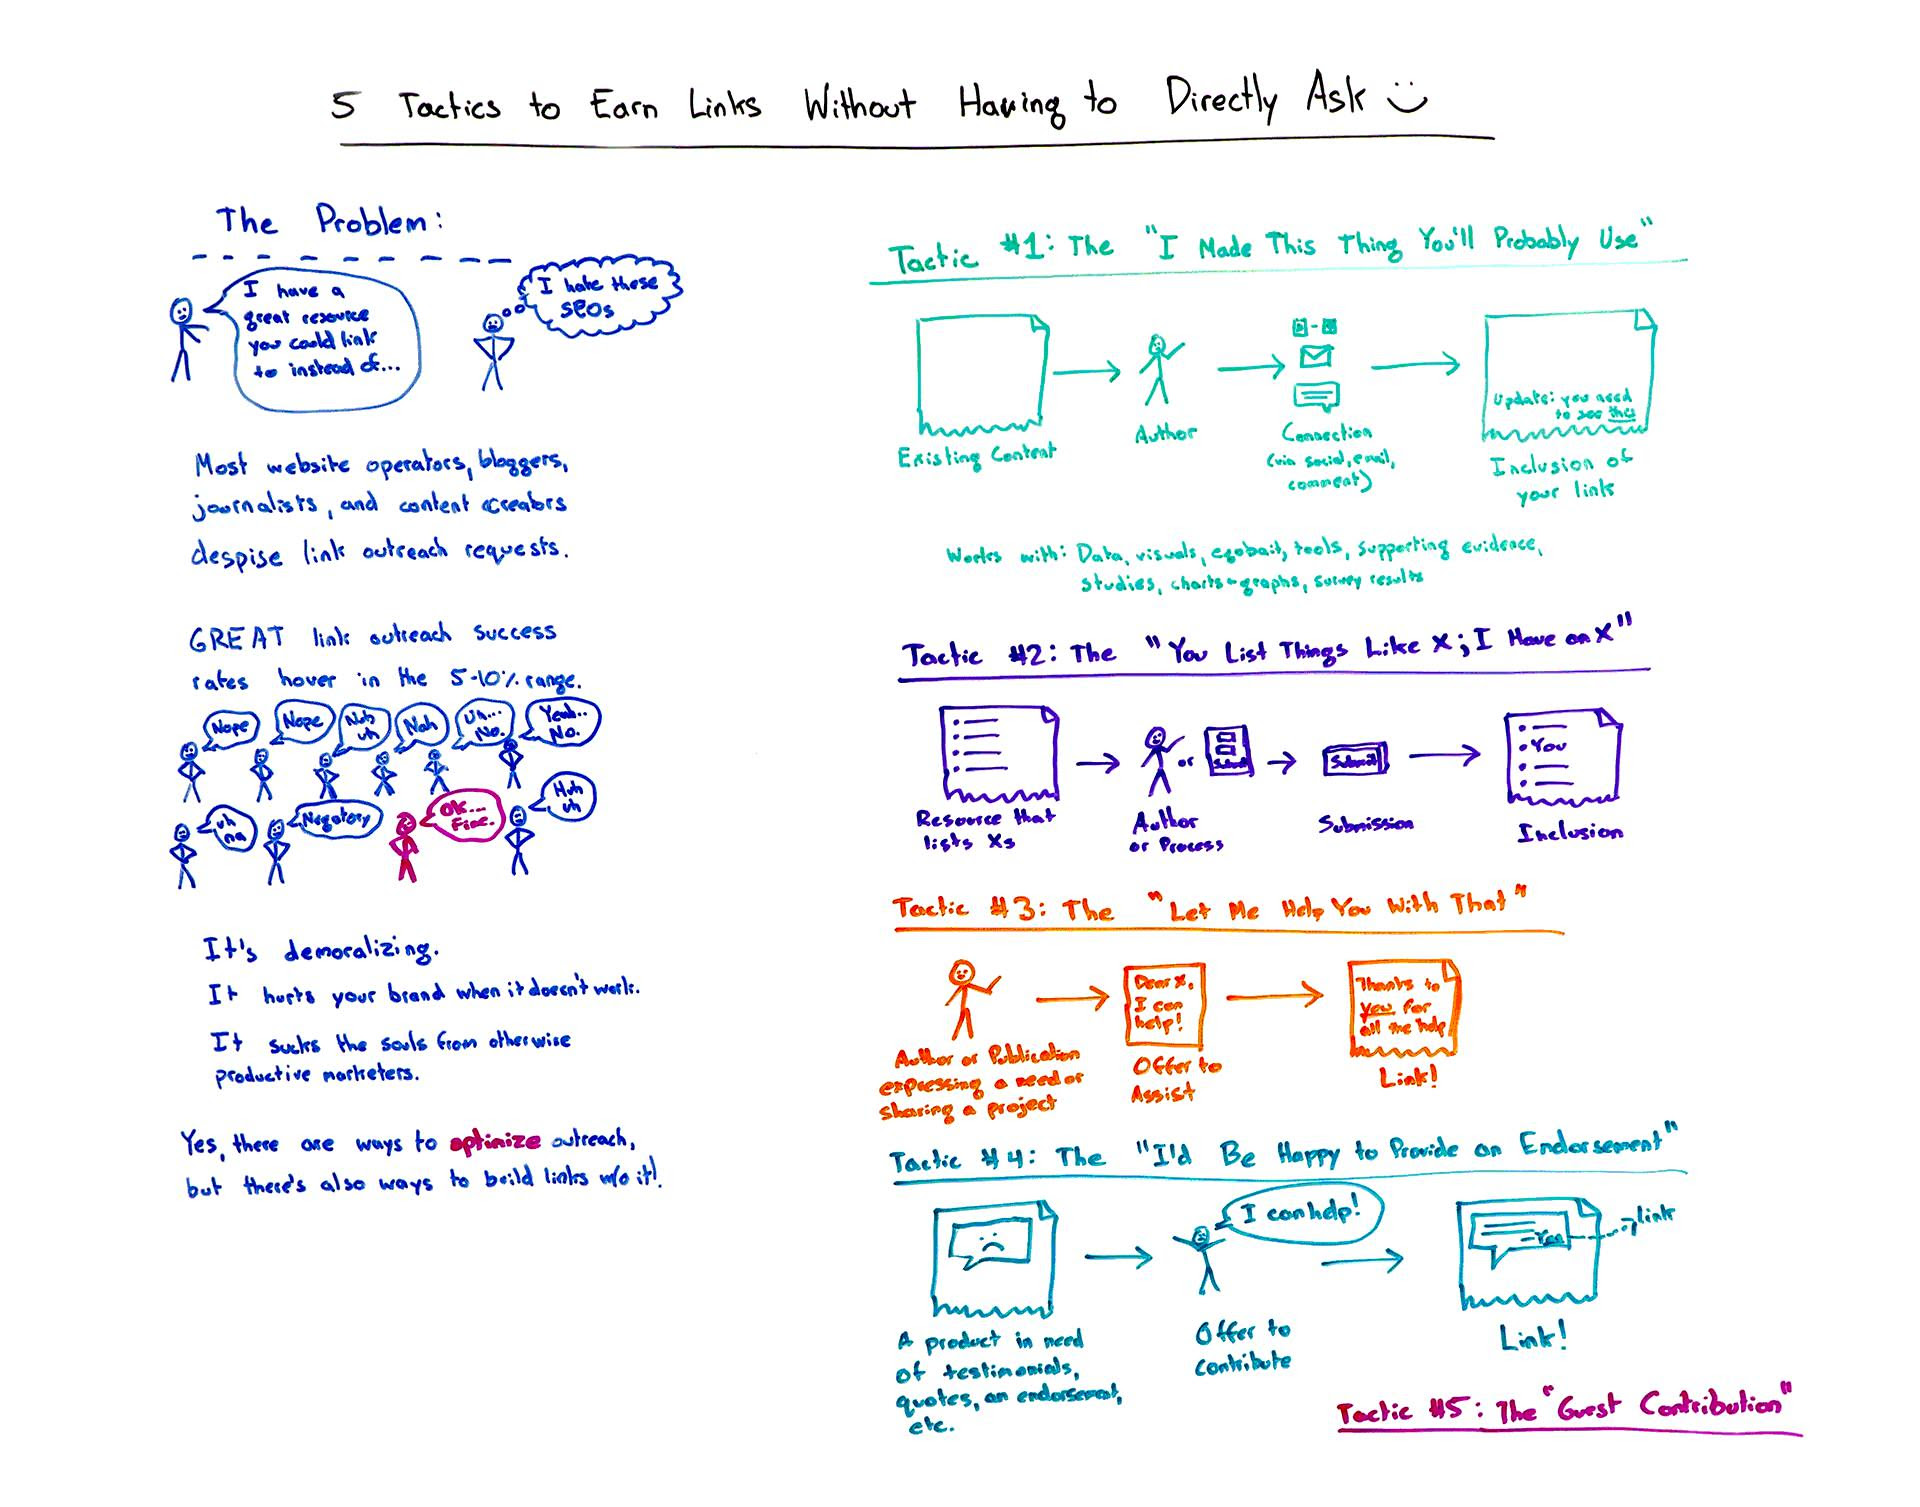 5 Tactics to Earn Links Without Having to Directly Ask
The Problem:
I have a
great resource
you could link
to instead of...
I hate these
SEOs
Most website operators, bloggers,
journalists, and content creators
despise link outreach requests.
GREAT link outreach success
rates hover in the 5-10% range.
Nope
Nope
Nuh
uh
Nah
Uh...
No.
Yeah..
No.
uh
na
Negatory
OK...
Fine.
Huh
uh
It's demoralizing.
It hurts your brand when it doesn't work.
It sucks the souls from otherwise
productive marketers.
Yes, there are ways to optimize outreach,
but there's also ways to build links w/o it!
Tactic #1: The "I Made This Thing You'll Probably Use"
Update: you need
to see this
Existing Content
Author
Connection
(via social, email,
comment)
Inclusion of
your link
Works with: Data, visuals, egobait, tools, supporting evidence,
studies, charts + graphs, survey results
Tactic #2: The "You List Things Like X; I Have an X"
or
Submit
Submit
You
Resource that
lists Xs
Author
or Process
Submission
Inclusion
Tactic #3: The "Let Me Help You With That"
Dear X,
I can
help!
Thanks to
you for
all the help
Author or Publication
expressing a need or
sharing a project
Offer to
Assist
Link!
Tactic #4: The "I'd Be Happy to Provide an Endorsement"
I can help!
-You
link
A product in need
of testimonials,
quotes, an endorsement,
etc.
Offer to
contribute
Link!
Tactic #5: The "Guest Contribution"